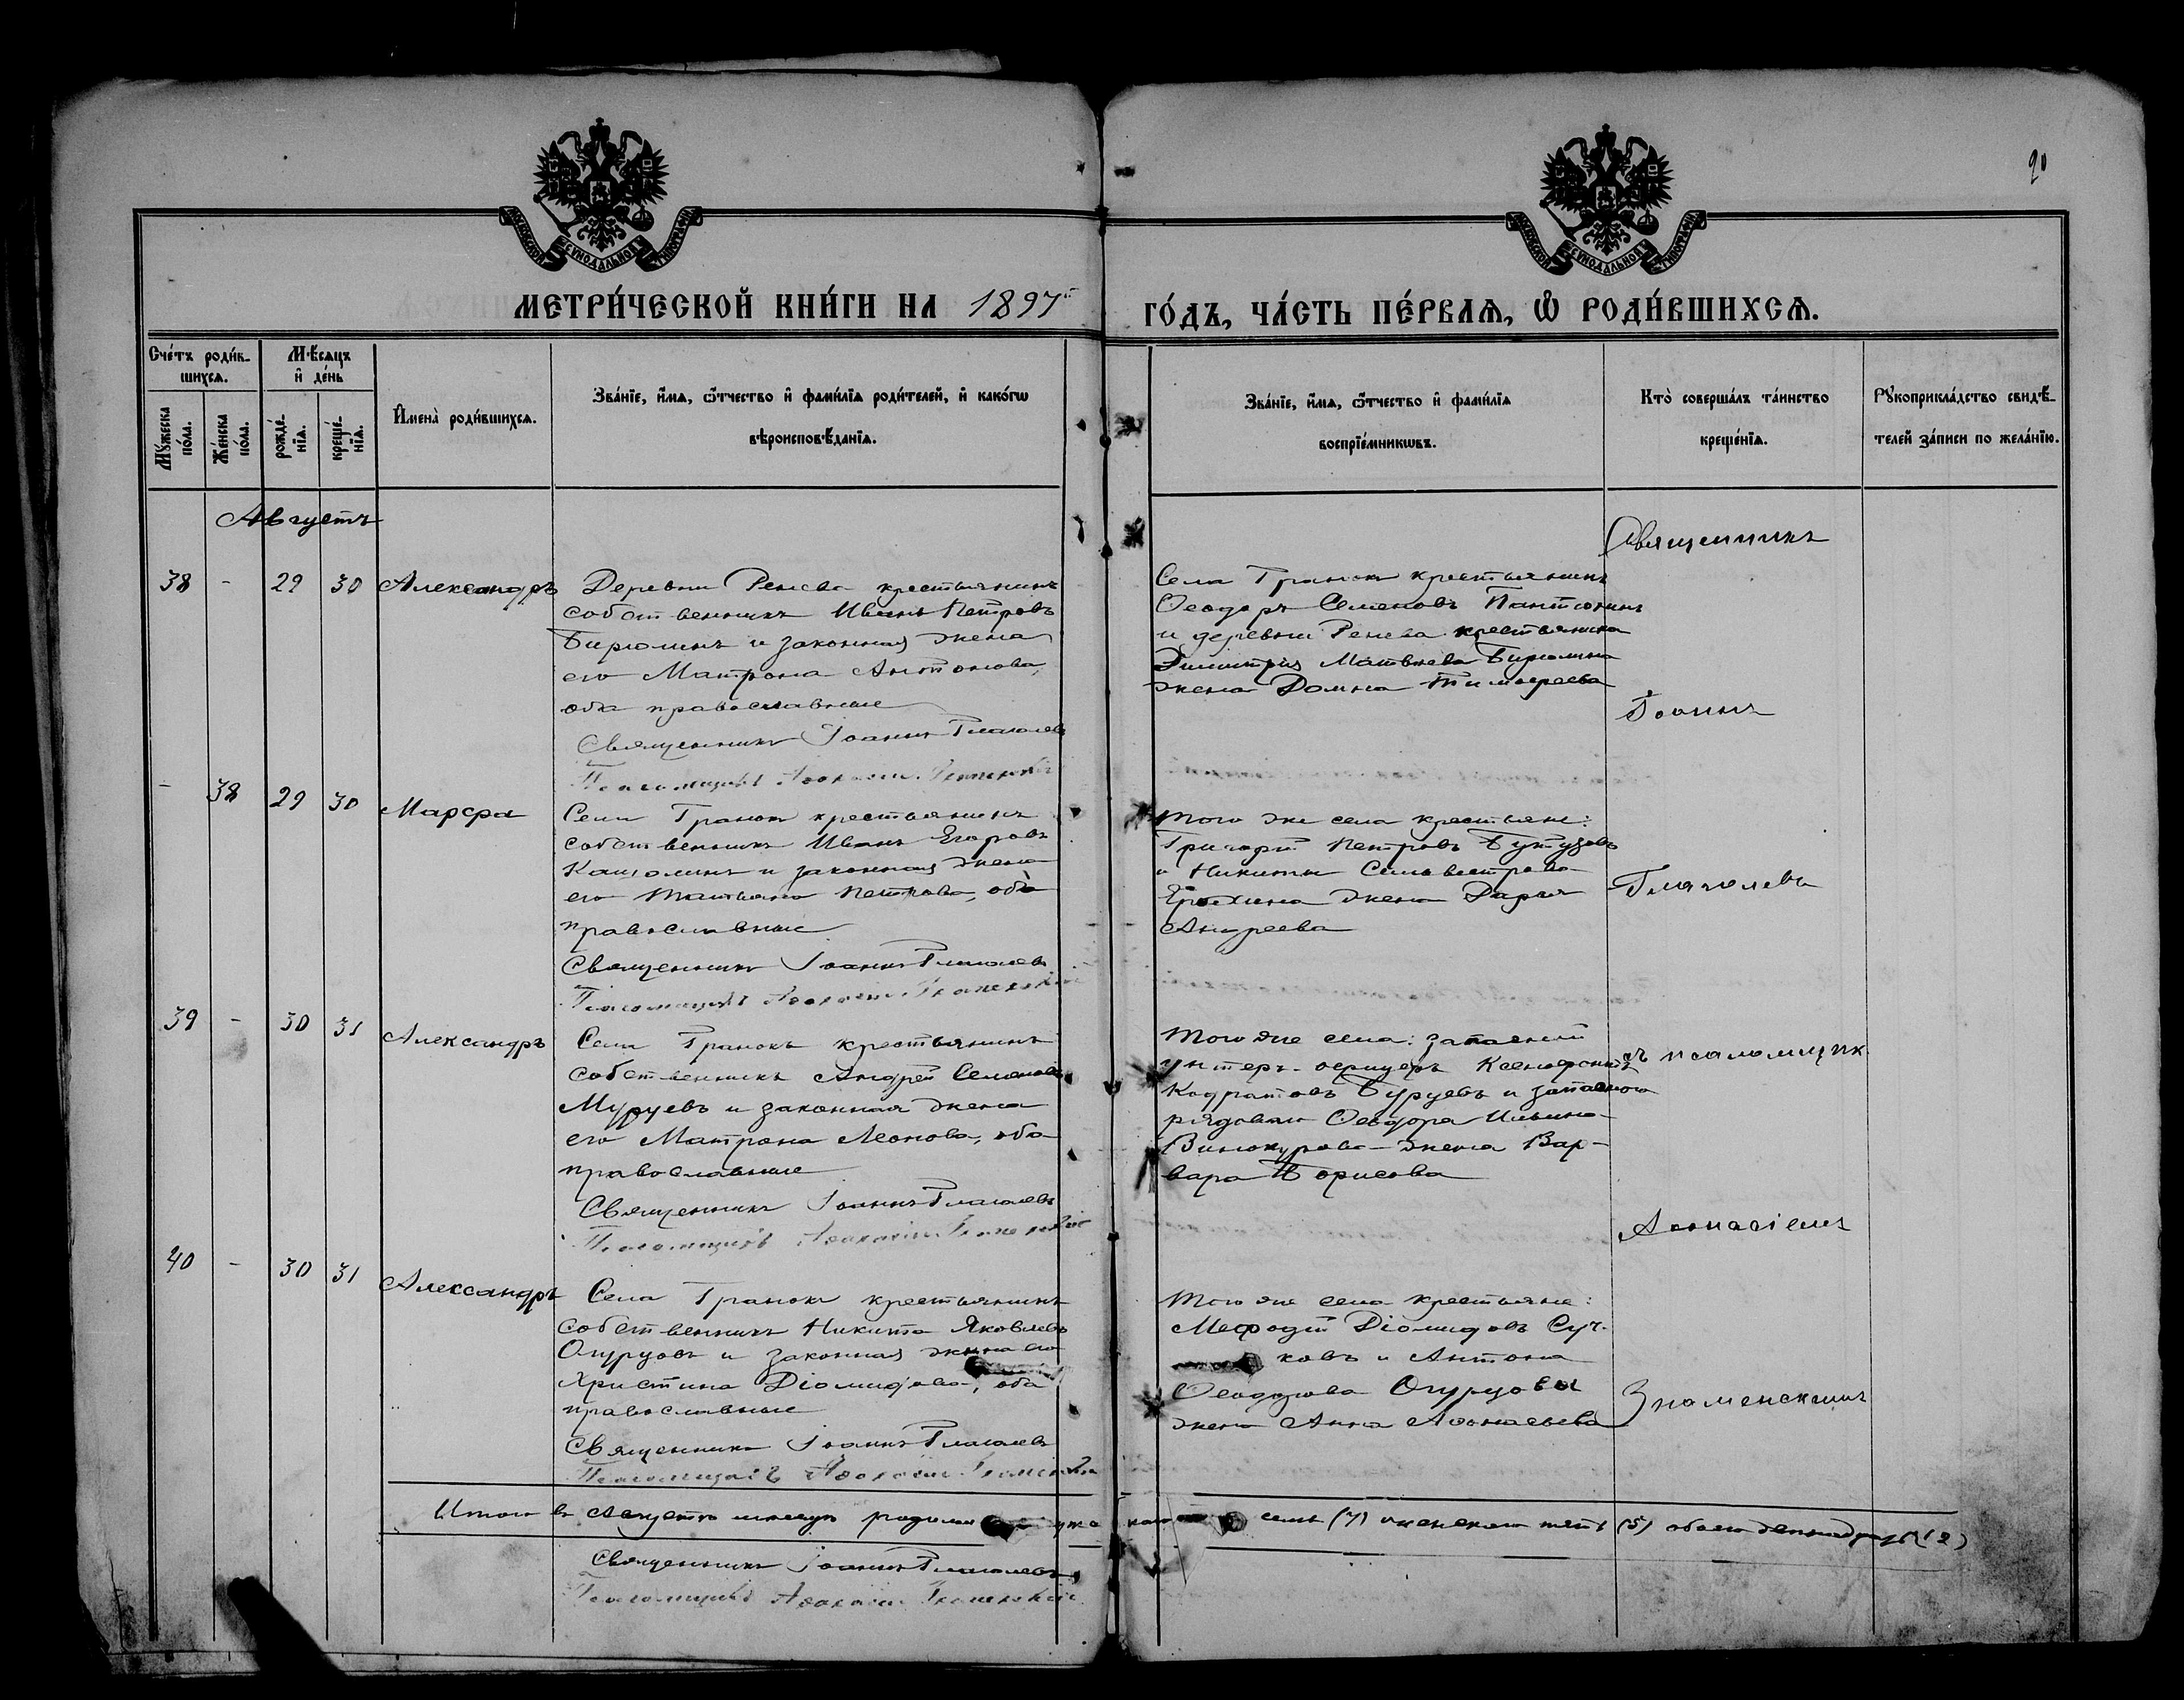 20
МОСКОВСКОЙ СѴНОДАЛЬНОЙ ТИПОГРАФІИ
МОСКОВСКОЙ СѴНОДАЛЬНОЙ ТИПОГРАФІИ
МЕТРИ́ЧЕСКОЙ КНИ́ГИ НА 1897
ГО́ДЪ, ЧА́СТЬ ПЕ́РВАѦ, Ѽ РОДИ́ВШИХСѦ.
Сче́тъ роди́в-
шихсѧ.
Мѣ́сѧцъ
и҆ де́нь
Мꙋ́жеска
по́ла.
Же́нска
по́ла.
рожде́-
нїѧ.
креще́-
нїѧ.
И҆мена̀ роди́вшихсѧ.
Зва́нїе, и҆́мѧ, ѻ҆́тчество и҆ фами́лїѧ роди́телей, и҆ како́гѡ
вѣроисповѣ́данїѧ.
Зва́нїе, и҆́мѧ, ѻ҆́тчество и҆ фами́лїѧ
воспрїе́мникѡвъ.
Кто̀ соверша́лъ та́инство
креще́нїѧ.
Рꙋкоприкла́дство свидѣ́-
телей за́писи по жела́нїю.
Августъ
38 - 29 30 Александръ
Деревни Ренева крестьянинъ
собственникъ Иванъ Петровъ
Бирюлинъ и законная жена
его Матрона Антонова,
оба православные
Священникъ Іоаннъ Глаголевъ
Псаломщикъ Аѳанасій Знаменскій
Села Гранокъ крестьянинъ
Ѳеодоръ Семеновъ Пантюхинъ
и деревни Ренева крестьянина
Димитрія Матвѣева Бирюлина
жена Домна Тимофеева
Священникъ
Іоаннъ
Глаголевъ
съ псаломщик
Аѳанасіемъ
Знаменскимъ
- 38 29 30 Марфа
Села Гранокъ крестьянинъ
собственникъ Иванъ Егоровъ
и законная жена
его Татьяна Петрова, оба
православные
Священникъ Іоаннъ Глаголевъ
Псаломщикъ Аѳанасій Знаменскій
Того же села крестьяне:
Григорій Петровъ Бутузовъ
и Никиты Сильвестрова
Ерохина жена Дарья
Андреева
39 - 30 31 Александръ
Села Гранокъ крестьянинъ
собственникъ Андрей Семеновъ
Муруевъ и законная жена
его Матрона Леонова, оба
православные
Священникъ Іоаннъ Глаголевъ
Псаломщикъ Аѳанасій Знаменскій
Того же села: запасный
унтеръ-офицеръ Ксенофонтъ
Кодратовъ Буруевъ и запасного
рядового Ѳеодора Ильина
Винокурова жена Вар-
вара Борисова
40 - 30 31 Александръ
Села Гранокъ крестьянинъ
собственникъ Никита Яковлевъ
Огурцовъ и законная жена его
Христина Діомидова, оба
православные
Священникъ Іоаннъ Глаголевъ
Псаломщикъ Аѳанасій Знаменскій
Того же села крестьяне:
Мефодій Діомидовъ Суч-
ковъ и Антона
Ѳеодорова Огурцова
жена Анна Аѳанасьева
Итого въ Августѣ мѣсяцѣ родилось семь (7) женскаго пять (5) обоего двенадцать (12)
Священникъ Іоаннъ Глаголевъ
Псаломщикъ Аѳанасій Знаменскій